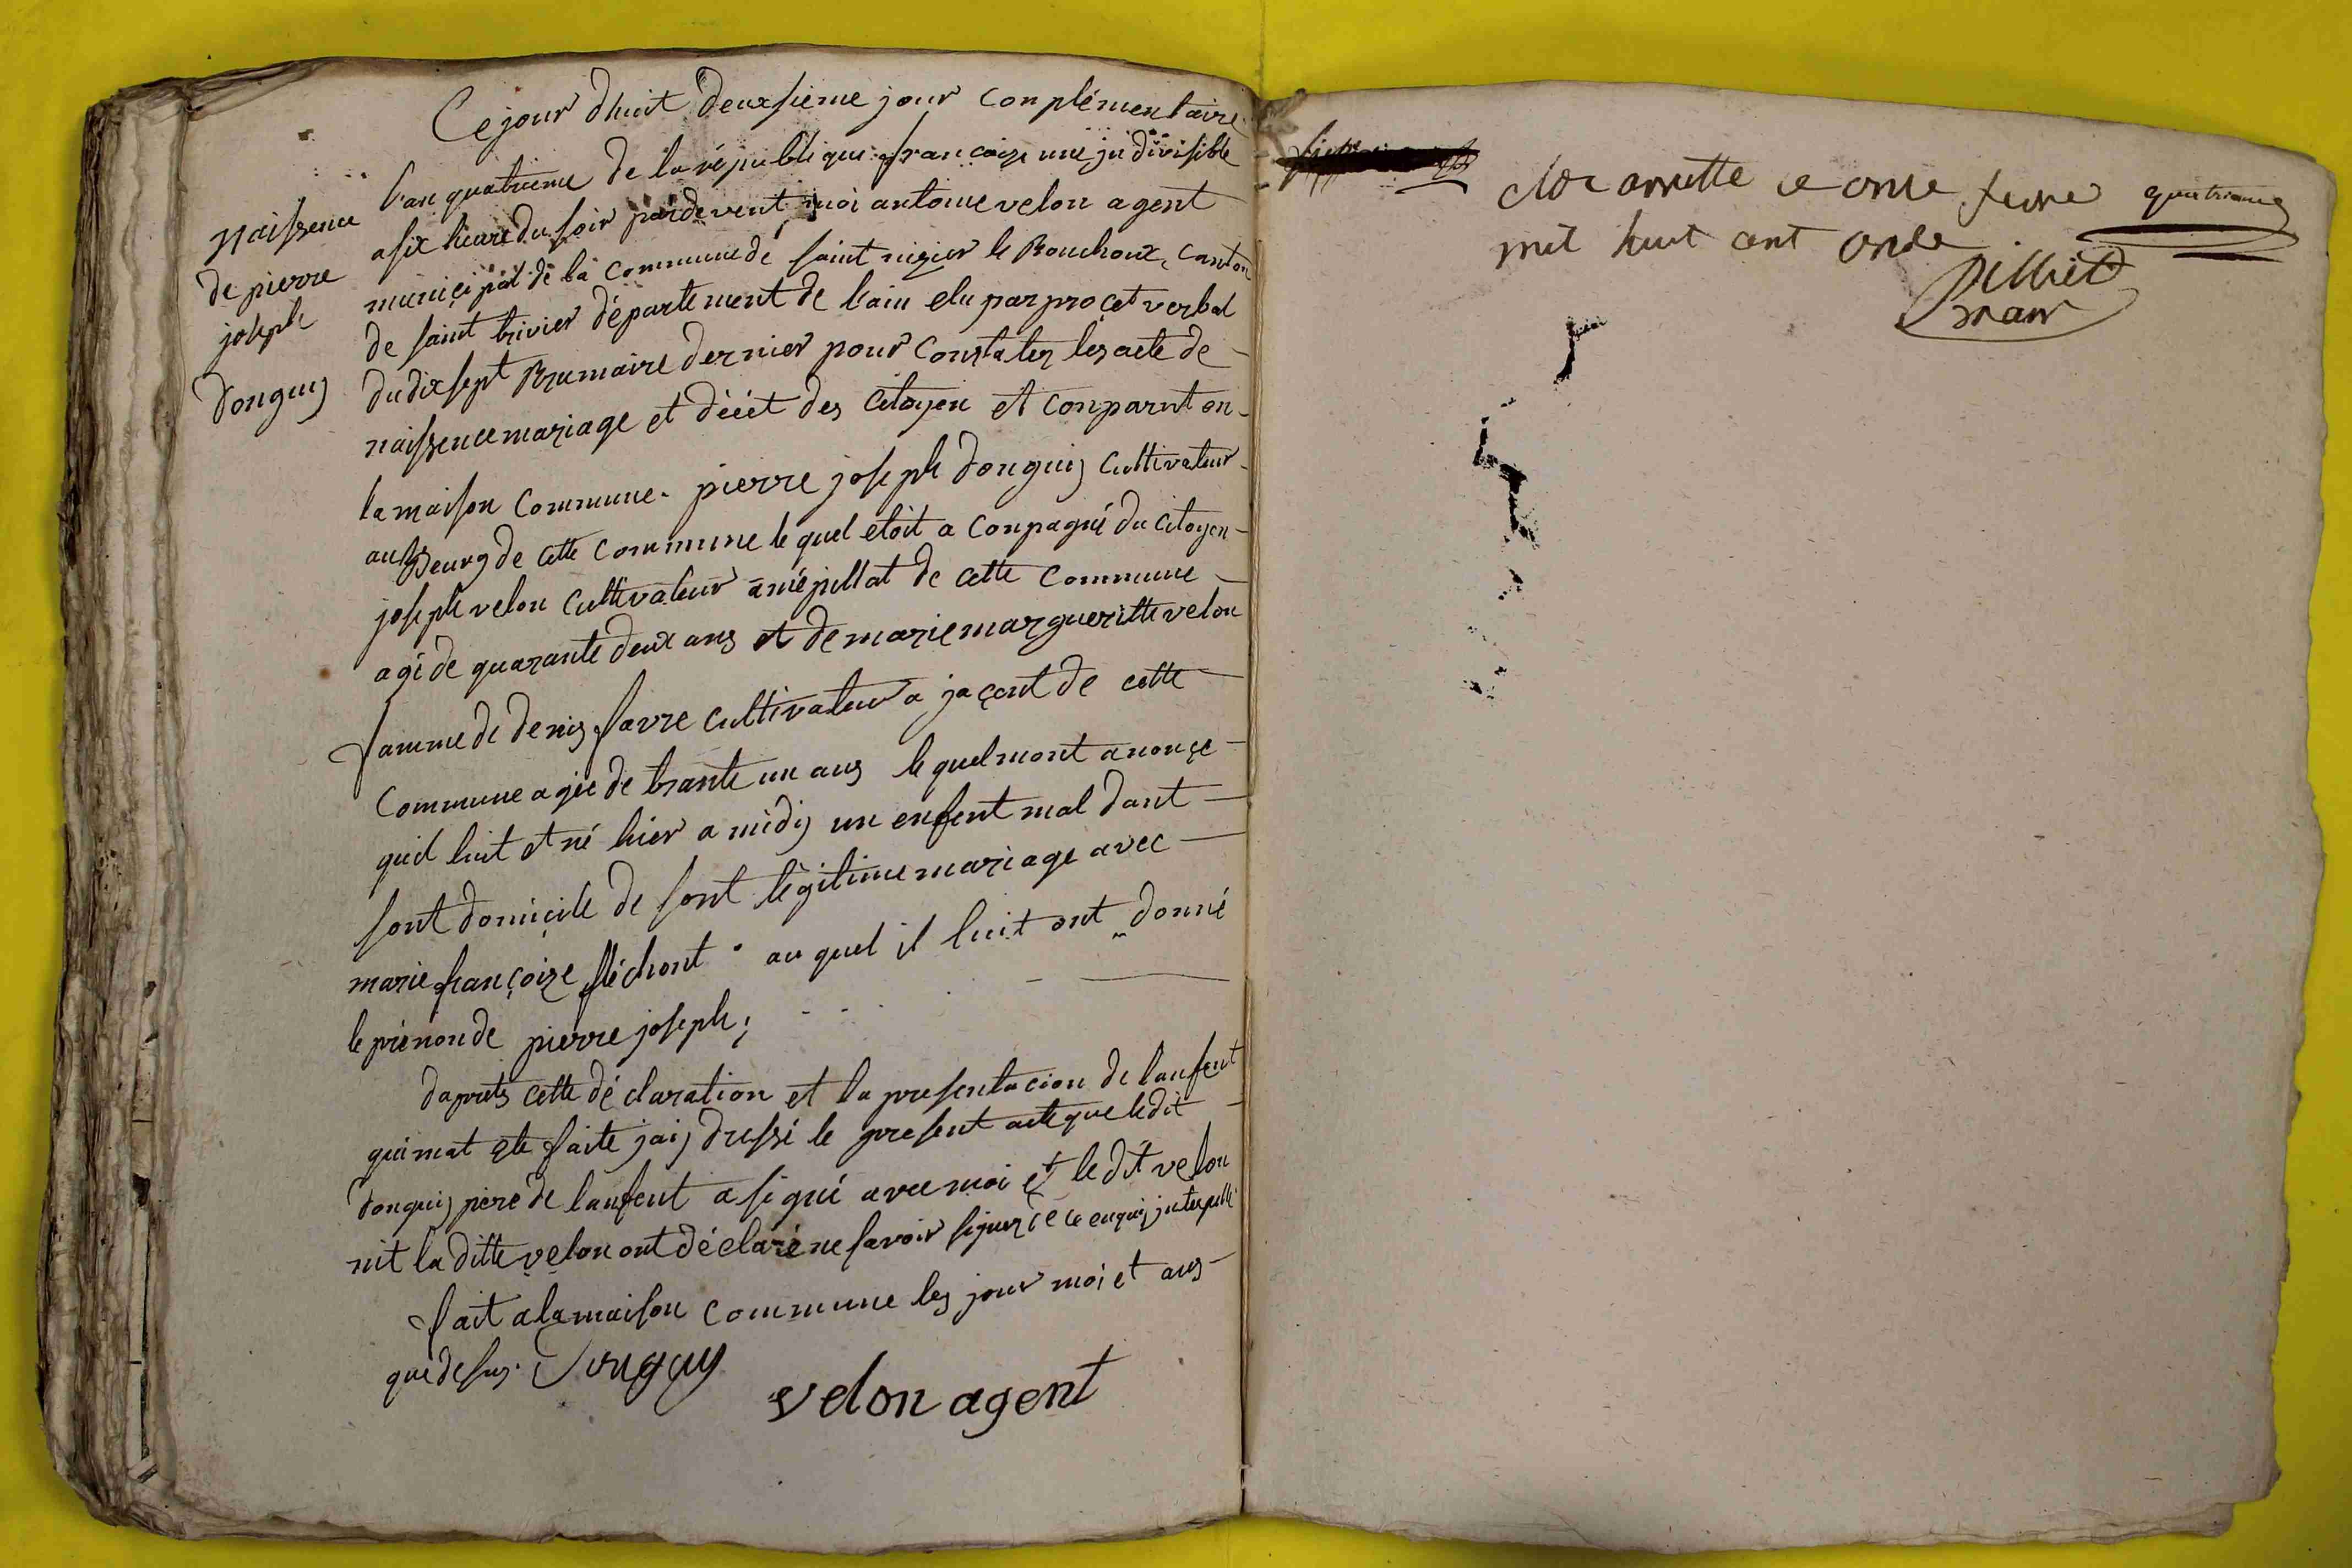 Ce jour dhuit deuxsieme jour conplémentaire
l'an quatrieme de la république françoize une jndivisible
a six heure du soir pardevent moi antoine velon agent
municipal de la commune de saint nizier le Bouchoux, canton
de saint trivier département de l'ain elu par procet verbal
du dix sept Brumaire dernier pour constater les acte de
naissence mariage et décét des citoyen et conparut en
la maison commune. pierre joseph donguy cultivateur
au Bourg de cette commune le quel etoit a conpagné du citoyen
joseph velon cultivateur a mépillat de cette commune
agé de quarante deux ans et de marie margueritte velon
famme de denis favre cultivateur a jaçont de cette
commune agée de trante un ans le quel mont anonçe
quil luit et né hier a midy un enfent mal dant
sont domicile de sont légitime mariage avec
marie françoize fléchont au quel il luit ont donné
le prénon de pierre joseph;
daprets cette déclaration et la presentacion de lanfent
qui mat ete faite jaiy dressé le present acte que ledit
donguy pere de lanfent a signé avec moi et le dit velon
nit la ditte velon ont déclaré ne savoir signer de ce enquij jnterpellé
fait a la maison commune les jour moi et ans
que desus. Donguy
velon agent
naissence
de pierre
joseph
donguy
clos arrette ce onse fevre
mil huit cent onse